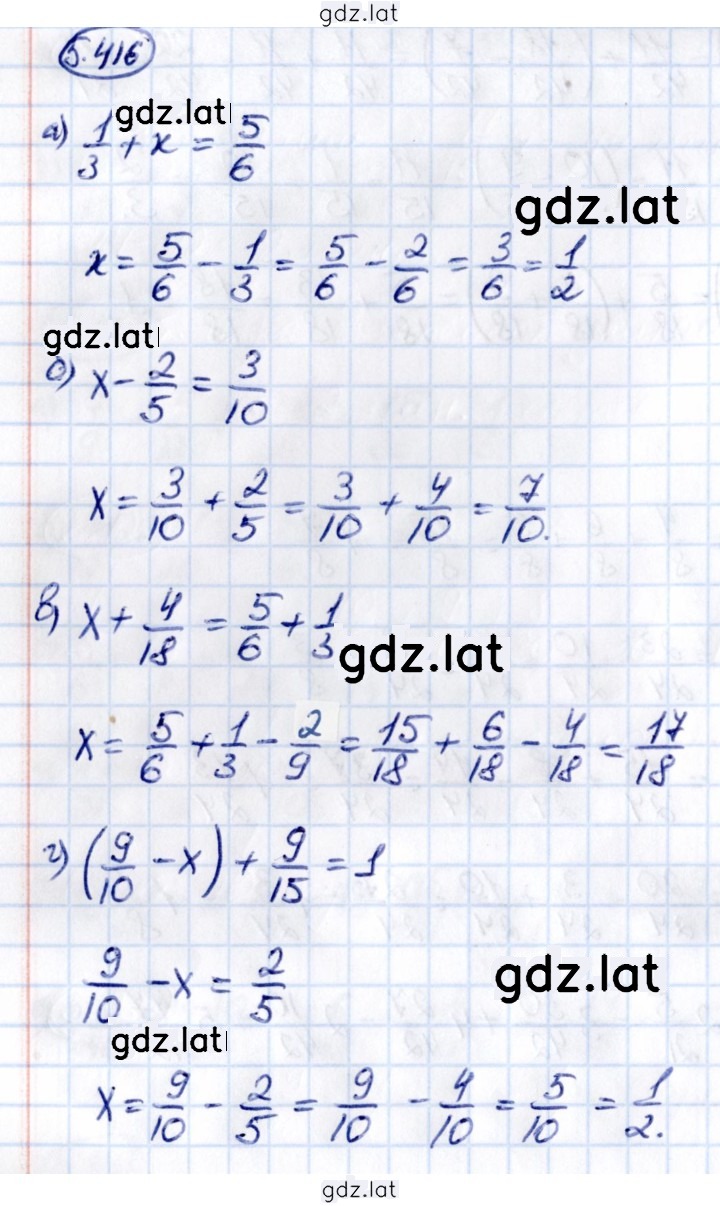 gdz.lat
5.416
gdz.lat
а) 1/3 + x = 5/6
gdz.lat
x = 5/6 - 1/3 = 5/6 - 2/6 = 3/6 = 1/2
gdz.lat
б) x - 2/5 = 3/10
x = 3/10 + 2/5 = 3/10 + 4/10 = 7/10.
в) x + 4/18 = 5/6 + 1/3
gdz.lat
x = 5/6 + 1/3 - 2/9 = 15/18 + 6/18 - 4/18 = 17/18
г) (9/10 - x) + 9/15 = 1
9/10 - x = 2/5
gdz.lat
gdz.lat
x = 9/10 - 2/5 = 9/10 - 4/10 = 5/10 = 1/2.
gdz.lat